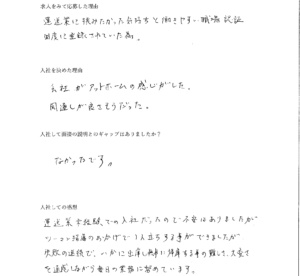 求人をみて応募した理由
運送業に挑みたかった気持ちと働きやすい職場認証
制度に登録されていた為。
入社を決めた理由
会社がアットホームの感じがした。
風通しが良さそうだった。
入社して面接の説明とのギャップはありましたか？
なかったです。
入社しての感想
運送業未経験での入社だったので不安はありましたが
ツーマン指導のおかげで1人立ちする事ができましたが
失敗の連続で、いかに出庫し無事に帰庫する事の難しさ、大変さ
を追感しながら毎日の業務に努めています。